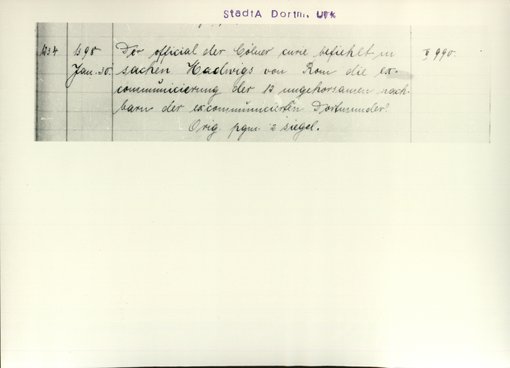 StadtA Dortm. Urk
1234 1398 Der official der Cölner curie befiehlt in II 990.
Jan. 30. sachen Hadwigs von Rom die ex-
communicierung der 12 ungehorsamen nach-
barn der excommunicierten Dortmunder.
Orig. pgm. 2 siegel.